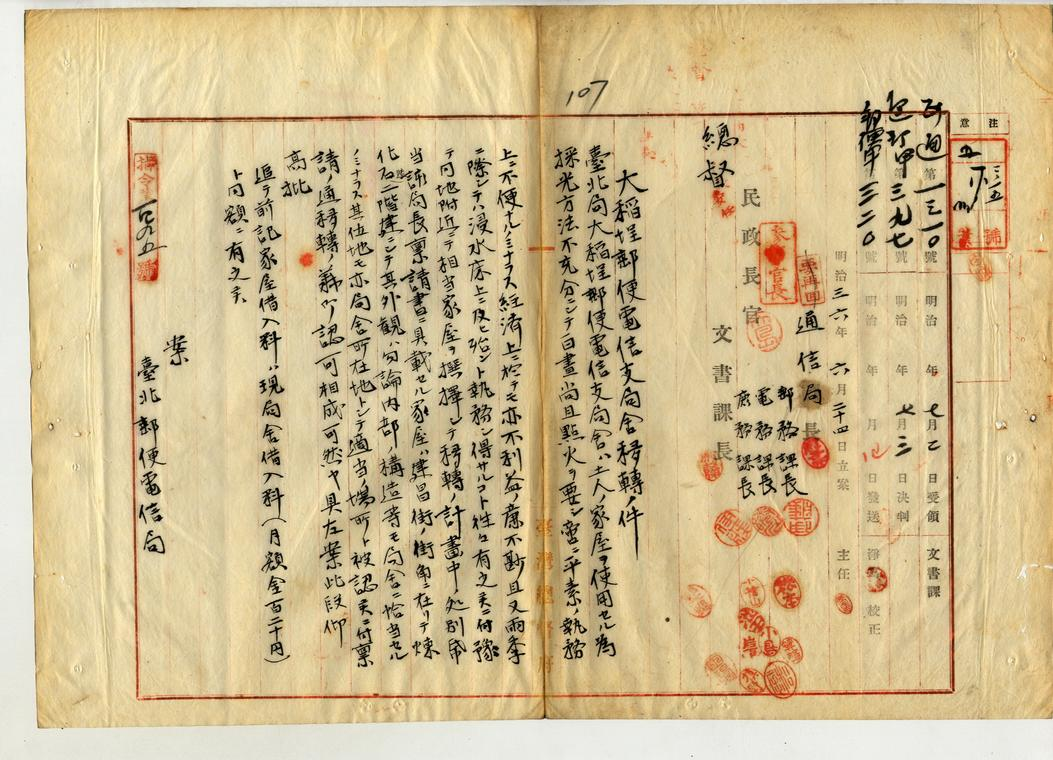 107
注意
民通第一三一〇號 明治 年七月乙日受領 文書課
第三九七號 明治 年七月三日決判
第三二〇號 明治 年 月 日發送 淨寫 校正
明治三六年六月二十四日立案 主任
通信局長
郵務課長
電務課長
庶務課長
民政長官 文書課長
總督
大稻埕郵便電信支局舍移轉ノ件
臺北局大稻埕郵便電信支局舍ハ土人ノ家屋ヲ使用セル為
採光方法不充分ニテ白晝尚且點火ヲ要シ啻ニ平素ノ執務
上ニ不便ナルノミナラス經濟上ニ於テモ亦不利益ノ廉不尠且又雨季
ニ際シテハ浸水床上ニ及ヒ殆ント執務シ得サルコト徃々有之候ニ付豫
テ同地附近ニテ相當家屋ヲ撰擇シテ移轉ノ計畫中ノ処別帋
當該局長稟請書ニ具載セル家屋ハ建昌街ノ街角ニ在リテ煉
化石二階建ニシテ其外觀ハ勿論內部ノ構造等モ局舍ニ恰当セル
ノミナラス其位地モ局舍所在地トシテ適当ノ場所ト被認候ニ付稟
請ノ通移轉ノ義御認可相成可然ヤ具左案此段仰
高批
追テ前記家屋借入料ハ現局舍借入料(月額金百二十円)
ト同額ニ有之候
案
臺北郵便電信局
臺灣總督府
指令第一五九五號